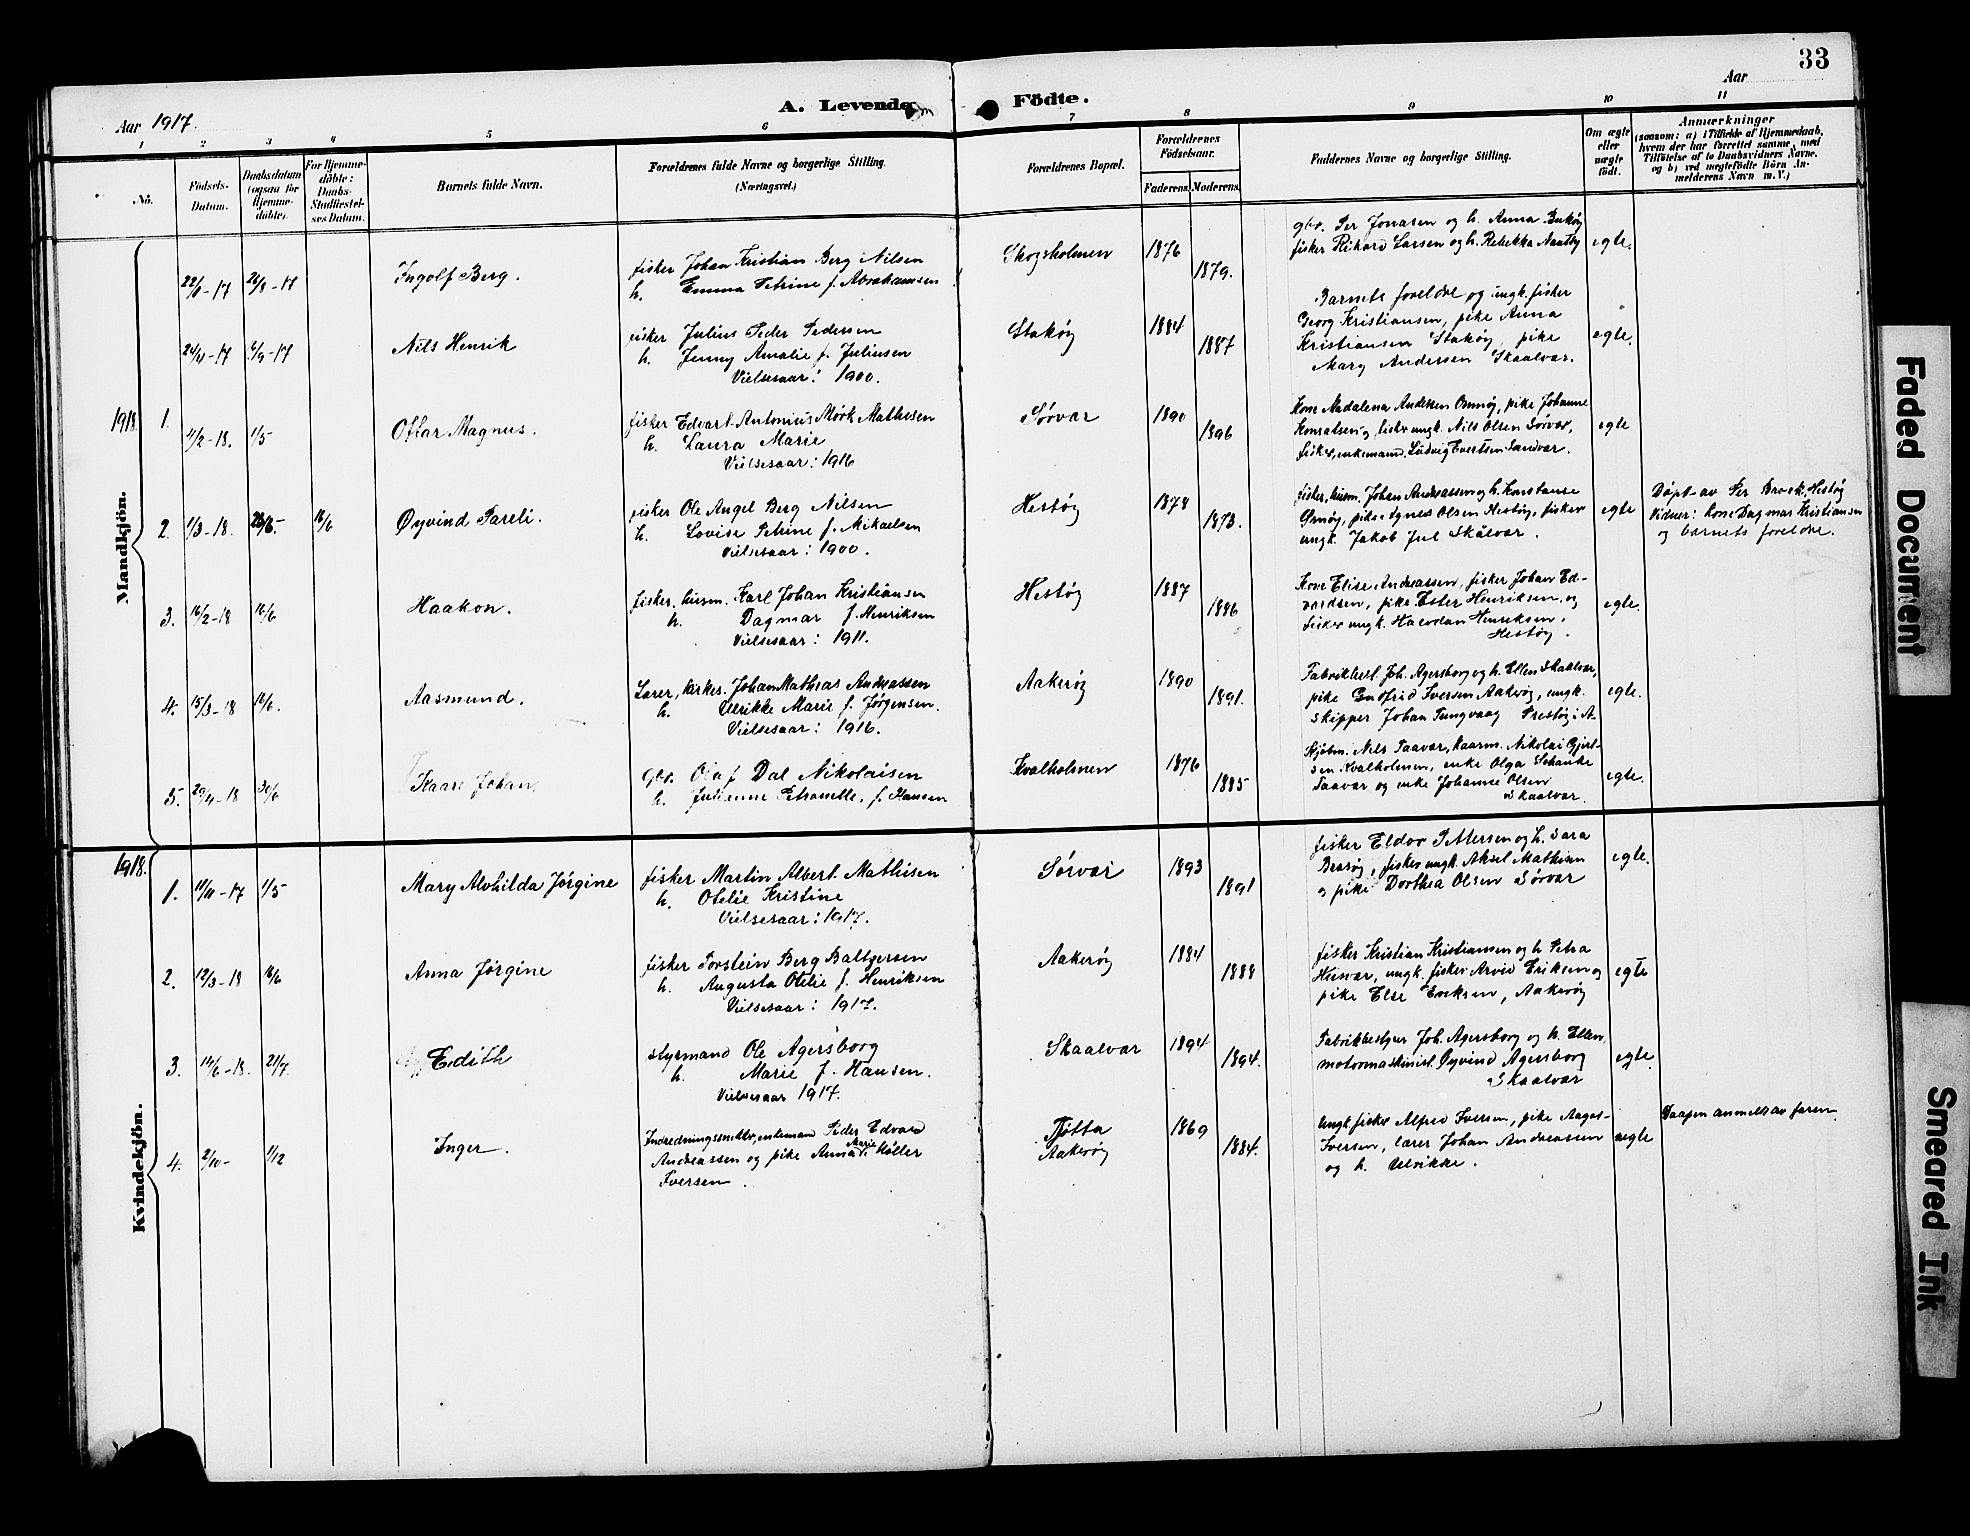 33
Aar 1917.
A. Levende
Födte.
Aar
1 2 3 4 5 6 7 8 9 10 11
No.
Födsels-
Datum.
Daabsdatum
(ogsaa for
Hjemme-
döbte).
For Hjemme-
döbte:
Daabs-
Stadfæstel-
ses Datum.
Barnets fulde Navn.
Forældrenes fulde Navne og borgerlige Stilling.
(Næringsvei.)
Forældrenes Bopæl.
Forældrenes
Födselsaar.
Faderens. Moderens.
Faddernes Navne og borgerlige Stilling.
Om ægte
eller
uægte
födt.
Anmærkninger
(saasom: a) i Tilfælde af Hjemmedaab,
hvem der har forrettet samme, med
Tilföielse af to Daabsvidners Navne.
og b) ved uægtefödte Börn An-
melderens Navn m. V.)
Mandkjön.
22/8-17 26/8-17
Ingolf Berg.
fisker Johan Kristian Berg Nilsen
h. Emma Petrine f. Abrahamsen
Skogsholmen
1876
1879.
gbr. Per Jonasen og h. Anna
fisker Rikard Larsen og h. Rebekka
egte.
-17 /9-17
Nils Henrik
fisker Julius Peder Pedersen
h. Jenny Amalie f. Juliusen
Vielsesaar: 1900.
Stakøy
1884
1887
Barnets foreldre og ungk. fisker
Georg Kristiansen, pike Anna
Kristiansen Stakøy, pike
Mary Andersen Skaalvar.
egte.
1918.
1. /2-18. 1/5
Otlar Magnus.
fisker Edvart Antonius Mørk Mathisen
h. Laura Marie
Vielsesaar: 1916
Sørvar
1890
1896
Kone Madalena Andersen, pike Johanne
fisker ungk. Nils Olsen Sørvar,
fisker, enkemand, Ludvig Evertsen Sandvar.
egte
2. 1/3-18. 16/6
Øyvind Pareli.
fisker Ole Angel Berg Nilsen
h. Lovise Petrine f. Mikaelsen
Vielsesaar: 1900.
Hestøy
1878
1873.
fisker, husm. Johan Andreassen og h. Konstanse
pike Agnes Olsen Hestøy, fisker
ungk. Jakob Jul Skålvar.
egte
Døpt av Per Brock, Hestøy
Vidner: kone Dagmar Kristiansen
og barnets foreldre.
3. 16/2-18 16/6
Haakon.
fisker, husm. Karl Johan Kristiansen
h. Dagmar f. Henriksen
Vielsesaar: 1911.
Hestøy
1887
1886
Kone Elise Andreassen, fisker Johan Ed-
vardsen, pike Ester Henriksen og
fisker ungk. Halvdan Henriksen,
Hestøy.
egte.
4. 15/3-18 16/6.
Aasmund.
Lærer, kirkes. Johan Mathias Andreassen
h. Ulrikke Marie f. Jørgensen.
Vielsesaar: 1916.
Aakerøy
1890
1891.
Fabrikbest. Joh. Agersborg og h. Ellen Skaalvar,
pike Gudfrid Iversen Aakerøy, ungk.
skipper Johan Tungvaag Prestøy i A.
egte.
5. 29/4-18 30/6
Kaare Johan.
gbr. Olaf Dal Nikolaisen
h. Julianne Petronelle, f. Hansen
Kvalholmen
1876
1885
Kjøbm. Nils Taavær, kaarm. Nikolai Gjert-
sen Kvalholmen, enke Olga Schanke
Taavær og enke Johanne Olsen
Skaalvar.
egte.
1918.
Kvindekjön.
1. -17 1/5
Mary Alvhilda Jørgine
fisker Martin Albert Mathisen
h. Otelie Kristine
Vielsesaar: 1917.
Sørvar
1893
1891
fisker Eldor Pettersen og h. Sara
Brasøy, fisker ungk. Aksel Mathisen
og pike Dorthea Olsen Sørvar
egte.
2. 12/3-18 16/6
Anna Jørgine
fisker Torstein Berg Baltzersen
h. Augusta Otelie f. Henriksen
Vielsesaar: 1917.
Aakerøy
1884
1888
fisker Kristian Kristiansen og h. Petra
Husvær, ungk. fisker Arvid Eriksen og
pike Else Eriksen, Aakerøy
egte
3. 14/6-18. 21/7
Edith
styrmand Ole Agersborg
h. Marie f. Hansen.
Vielsesaar 1917.
Skaalvar
1894
1894.
Fabrikbestyr Joh. Agersborg og h. Ellen,
motormaskinist Øyvind Agersborg
Skaalvar
egte.
4. 2/10- 1/12
Inger.
Indredningssnekker, enkemand Peder Edvard
Andreassen og pike Anna Marie Møller
Iversen.
Tjøtta
Aakerøy
1869
1884.
Ungk. fisker Alfred Iversen, pike Aagot
Iversen, lærer Johan Andreassen
og h. Ulrikke.
uegte
Daapen anmeldt av faren
Faded Document
Smeared Ink